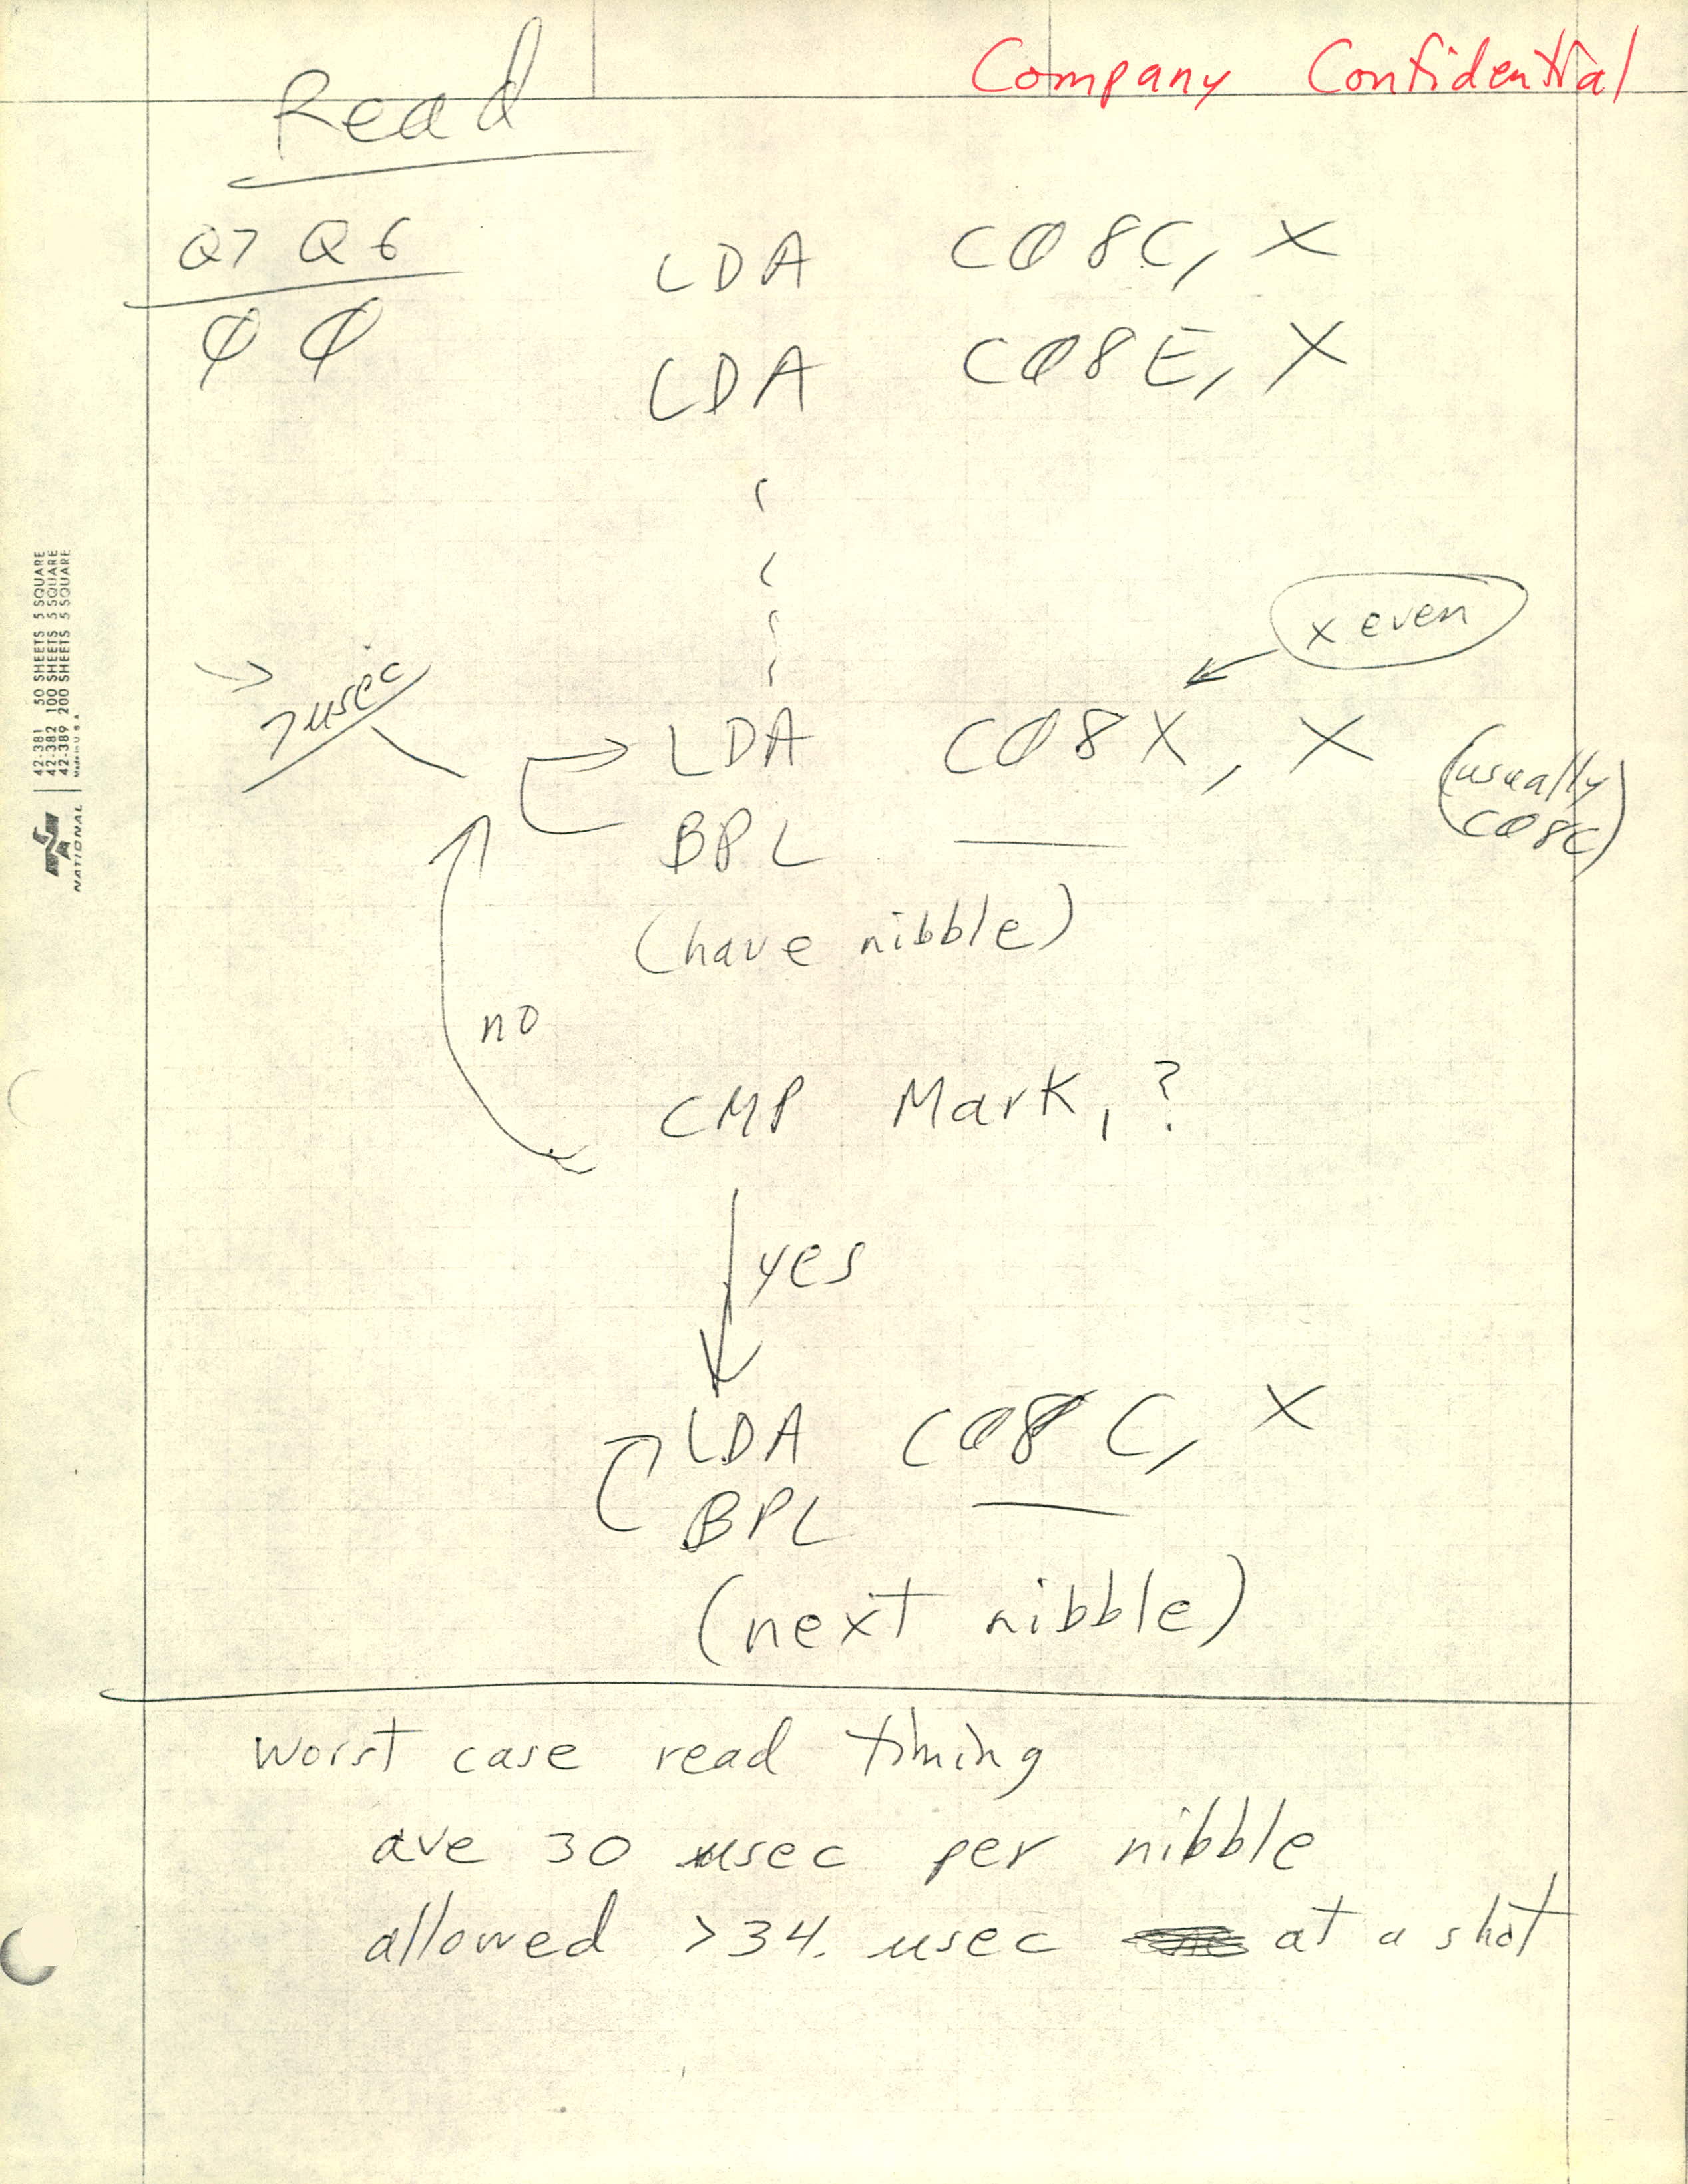 Company Confidential
Read
Q7 Q6
Ø Ø
LDA CØ8C, X
LDA CØ8E, X
x even
7 usec
LDA CØ8X, X (usually CØ8C)
BPL ___
(have nibble)
no
CMP Mark, ?
yes
LDA CØ8C, X
BPL ___
(next nibble)
worst case read timing
ave 30 usec per nibble
allowed >34. usec at a shot
42-381 50 SHEETS 5 SQUARE
42-382 100 SHEETS 5 SQUARE
42-389 200 SHEETS 5 SQUARE
Made in U.S.A.
NATIONAL